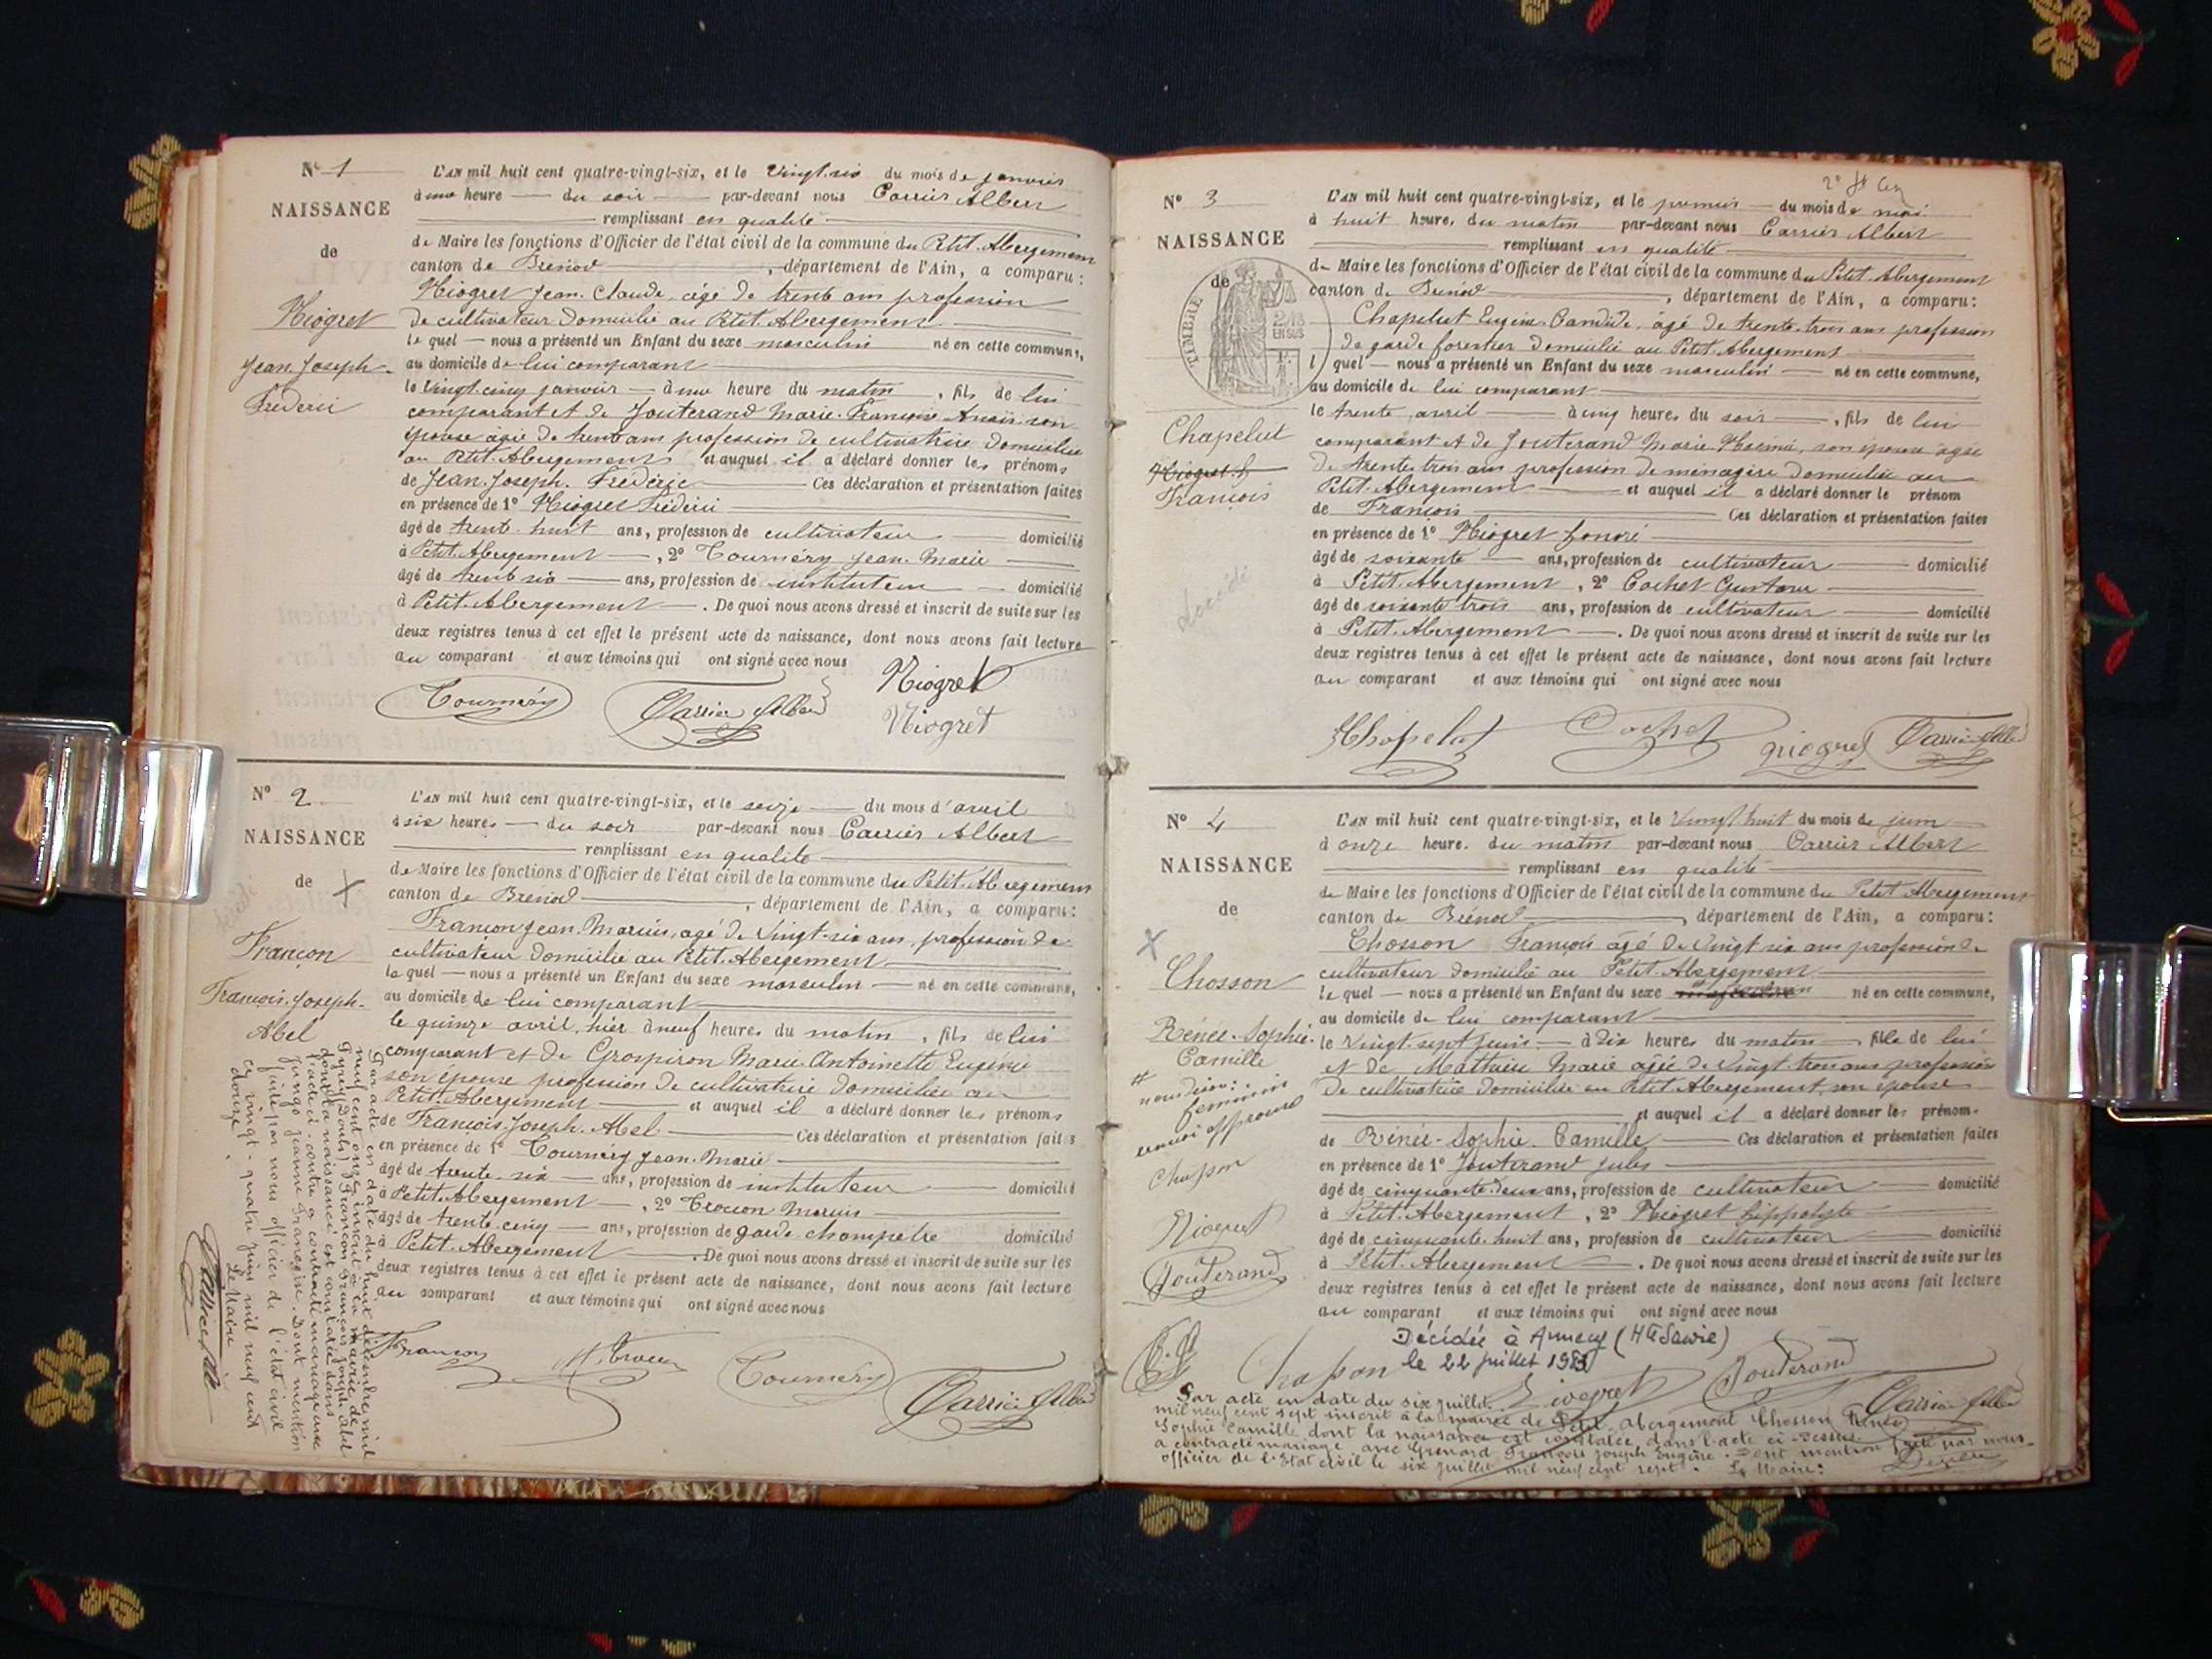 N° 1
NAISSANCE
de
Niogret
Jean-Joseph-
Fréderic
L'AN mil huit cent quatre-vingt-six, et le vingt-six du mois de janvier
à une heure du soir par-devant nous Carrier Albert
remplissant en qualité
de Maire les fonctions d'Officier de l'état civil de la commune du Petit-Abergement
canton de Brénod, département de l'Ain, a comparu:
Niogret Jean-Claude, âgé de trente ans profession
de cultivateur domicilié au Petit-Abergement
le quel nous a présenté un Enfant du sexe masculin né en cette commune,
au domicile de lui comparant
le vingt-cinq janvier à une heure du matin, fils de lui
comparant et de Jouterand Marie-Françoise Anaïs son
épouse âgée de trente ans profession de cultivatrice domiciliée
au Petit-Abergement et auquel il a déclaré donner les prénoms
de Jean-Joseph-Fréderic Ces déclaration et présentation faites
en présence de 1° Niogret Fréderic
âgé de trente-huit ans, profession de cultivateur domicilié
à Petit-Abergement, 2° Tournéry Jean-Marie
âgé de trente six ans, profession de instituteur domicilié
à Petit-Abergement. De quoi nous avons dressé et inscrit de suite sur les
deux registres tenus à cet effet le présent acte de naissance, dont nous avons fait lecture
au comparant et aux témoins qui ont signé avec nous
Niogret
Tournéry Carrier Albert
Niogret
N° 2
NAISSANCE
de X
Françon
François-Joseph-
Abel
L'AN mil huit cent quatre-vingt-six, et le seize du mois d'avril
à six heures du soir par-devant nous Carrier Albert
remplissant en qualité
de Maire les fonctions d'Officier de l'état civil de la commune du Petit-Abergement
canton de Brénod, département de l'Ain, a comparu:
Françon Jean-Marius, âgé de vingt-six ans, profession de
cultivateur domicilié au Petit-Abergement
le quel nous a présenté un Enfant du sexe masculin né en cette commune,
au domicile de lui comparant
le quinze avril, hier à neuf heures du matin, fils de lui
comparant et de Grospiron Marie Antoinette Eugénie
son épouse profession de cultivatrice domiciliée au
Petit-Abergement et auquel il a déclaré donner les prénoms
de François-Joseph-Abel Ces déclaration et présentation faites
en présence de 1° Tournéry Jean-Marie
âgé de trente-six ans, profession de instituteur domicilié
à Petit-Abergement, 2° Marius
âgé de trente-cinq ans, profession de garde champêtre domicilié
à Petit-Abergement. De quoi nous avons dressé et inscrit de suite sur les
deux registres tenus à cet effet le présent acte de naissance, dont nous avons fait lecture
au comparant et aux témoins qui ont signé avec nous
Françon Tournéry Carrier Albert
Par acte en date du huit décembre mil
neuf cent onze inscrit à la mairie de
(Doubs) Françon François Joseph Abel
dont la naissance est constatée dans
l'acte ci-contre a contracté mariage avec
Jeanne Françoise. Dont mention
faite par nous officier de l'état civil
ce vingt-quatre juin mil neuf cent
douze.
Le Maire
N° 3
NAISSANCE
de
TIMBRE
2/10
EN SUS
Chapelut
François
décédé
L'AN mil huit cent quatre-vingt-six, et le premier du mois de mai
à huit heure, du matin par-devant nous Carrier Albert
remplissant en qualité
de Maire les fonctions d'Officier de l'état civil de la commune du Petit-Abergement
canton de Brénod, département de l'Ain, a comparu:
Chapelut Eugène-Candide, âgé de trente-trois ans profession
de garde forestier domicilié au Petit-Abergement
l quel nous a présenté un Enfant du sexe masculin né en cette commune,
au domicile de lui comparant
le trente avril à cinq heures du soir, fils de lui
comparant et de Jouterand Marie-Noémie, son épouse âgée
de trente-trois ans profession de ménagère domiciliée au
Petit-Abergement et auquel il a déclaré donner le prénom
de François Ces déclaration et présentation faites
en présence de 1° Niogret honoré
âgé de soixante ans, profession de cultivateur domicilié
à Petit-Abergement, 2° Cochet Gustave
âgé de soixante trois ans, profession de cultivateur domicilié
à Petit-Abergement. De quoi nous avons dressé et inscrit de suite sur les
deux registres tenus à cet effet le présent acte de naissance, dont nous avons fait lecture
au comparant et aux témoins qui ont signé avec nous
Chapelut Cochet Niogret Carrier Albert
N° 4
NAISSANCE
de
X
Chosson
Rénée-Sophie-
Camille
nous disons:
féminin
renvoi approuvé
Chosson
Niogret
Jouterand
L'AN mil huit cent quatre-vingt-six, et le vingt huit du mois de juin
à onze heure. du matin par-devant nous Carrier Albert
remplissant en qualité
de Maire les fonctions d'Officier de l'état civil de la commune du Petit Abergement
canton de Brénod, département de l'Ain, a comparu:
Chosson François âgé de vingt six ans profession de
cultivateur domicilié au Petit-Abergement
le quel nous a présenté un Enfant du sexe masculin né en cette commune,
au domicile de lui comparant
le vingt-sept juin à dix heures du matin fille de lui
et de Mathieu Marie âgée de vingt-trois ans profession
de cultivatrice domiciliée au Petit-Abergement, son épouse
et auquel il a déclaré donner les prénom.
de Rénée-Sophie-Camille Ces déclaration et présentation faites
en présence de 1° Jouterand Jules
âgé de cinquante-deux ans, profession de cultivateur domicilié
à Petit-Abergement, 2° Niogret hippolyte
âgé de cinquante-huit ans, profession de cultivateur domicilié
à Petit-Abergement. De quoi nous avons dressé et inscrit de suite sur les
deux registres tenus à cet effet le présent acte de naissance, dont nous avons fait lecture
au comparant et aux témoins qui ont signé avec nous
Décédée à Annecy (Hte Savoie)
le 22 juillet
Chosson Niogret Jouterand Carrier Albert
Par acte en date du six juillet
mil neuf cent sept inscrit à la mairie de Petit Abergement Chosson Rénée
Sophie Camille dont la naissance est constatée dans l'acte ci-dessus
a contracté mariage avec Grenard François Joseph Eugène. Dont mention faite par nous
officier de l'Etat civil le six juillet mil neuf cent sept. Le Maire: